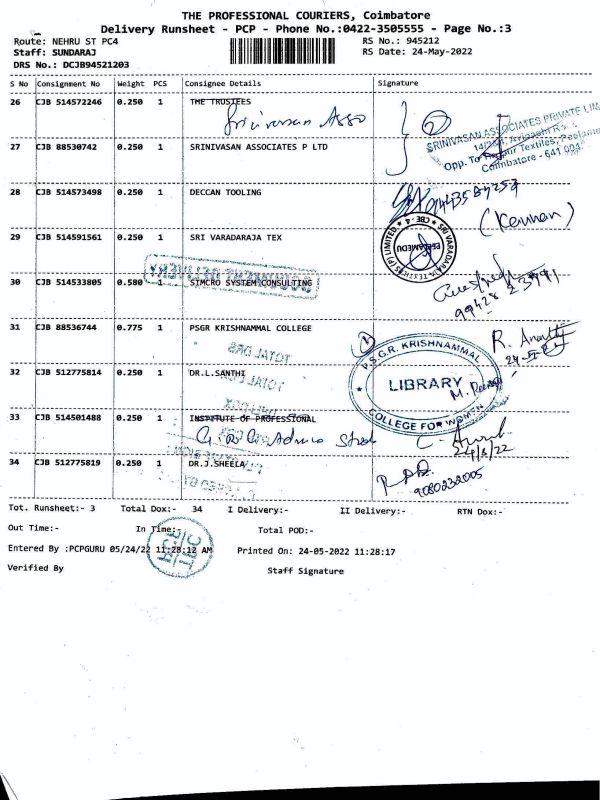 THE PROFESSIONAL COURIERS, Coimbatore
Delivery Runsheet - PCP - Phone No.:0422-3505555 - Page No.:3
Route: NEHRU ST PC4 RS No.: 945212
Staff: SUNDARAJ RS Date: 24-May-2022
DRS No.: DCJB94521203
S No Consignment No Weight PCS Consignee Details Signature
26 CJB 514572246 0.250 1 THE TRUSTEES
Srinivasan Asso
SRINIVASAN ASSOCIATES PRIVATE LIM
Coimbatore - 641 004
27 CJB 88530742 0.250 1 SRINIVASAN ASSOCIATES P LTD
28 CJB 514573498 0.250 1 DECCAN TOOLING
(Kannan)
29 CJB 514591561 0.250 1 SRI VARADARAJA TEX
SRI VARADARAJA TEXTILES (P) LIMITED CBE-4
PEELAMEDU
30 CJB 514533805 0.580 1 SIMCRO SYSTEM CONSULTING
31 CJB 88536744 0.775 1 PSGR KRISHNAMMAL COLLEGE
P.S.G.R. KRISHNAMMAL
LIBRARY
COLLEGE FOR WOMEN
TOTAL DRS
32 CJB 512775814 0.250 1 DR.L.SANTHI
33 CJB 514501488 0.250 1 INSTITUTE OF PROFESSIONAL
34 CJB 512775819 0.250 1 DR.J.SHEELA
9080232005
Tot. Runsheet:- 3 Total Dox:- 34 I Delivery:- II Delivery:- RTN Dox:-
Out Time:- In Time:- Total POD:-
Entered By :PCPGURU 05/24/22 11:28:12 AM Printed On: 24-05-2022 11:28:17
Verified By Staff Signature